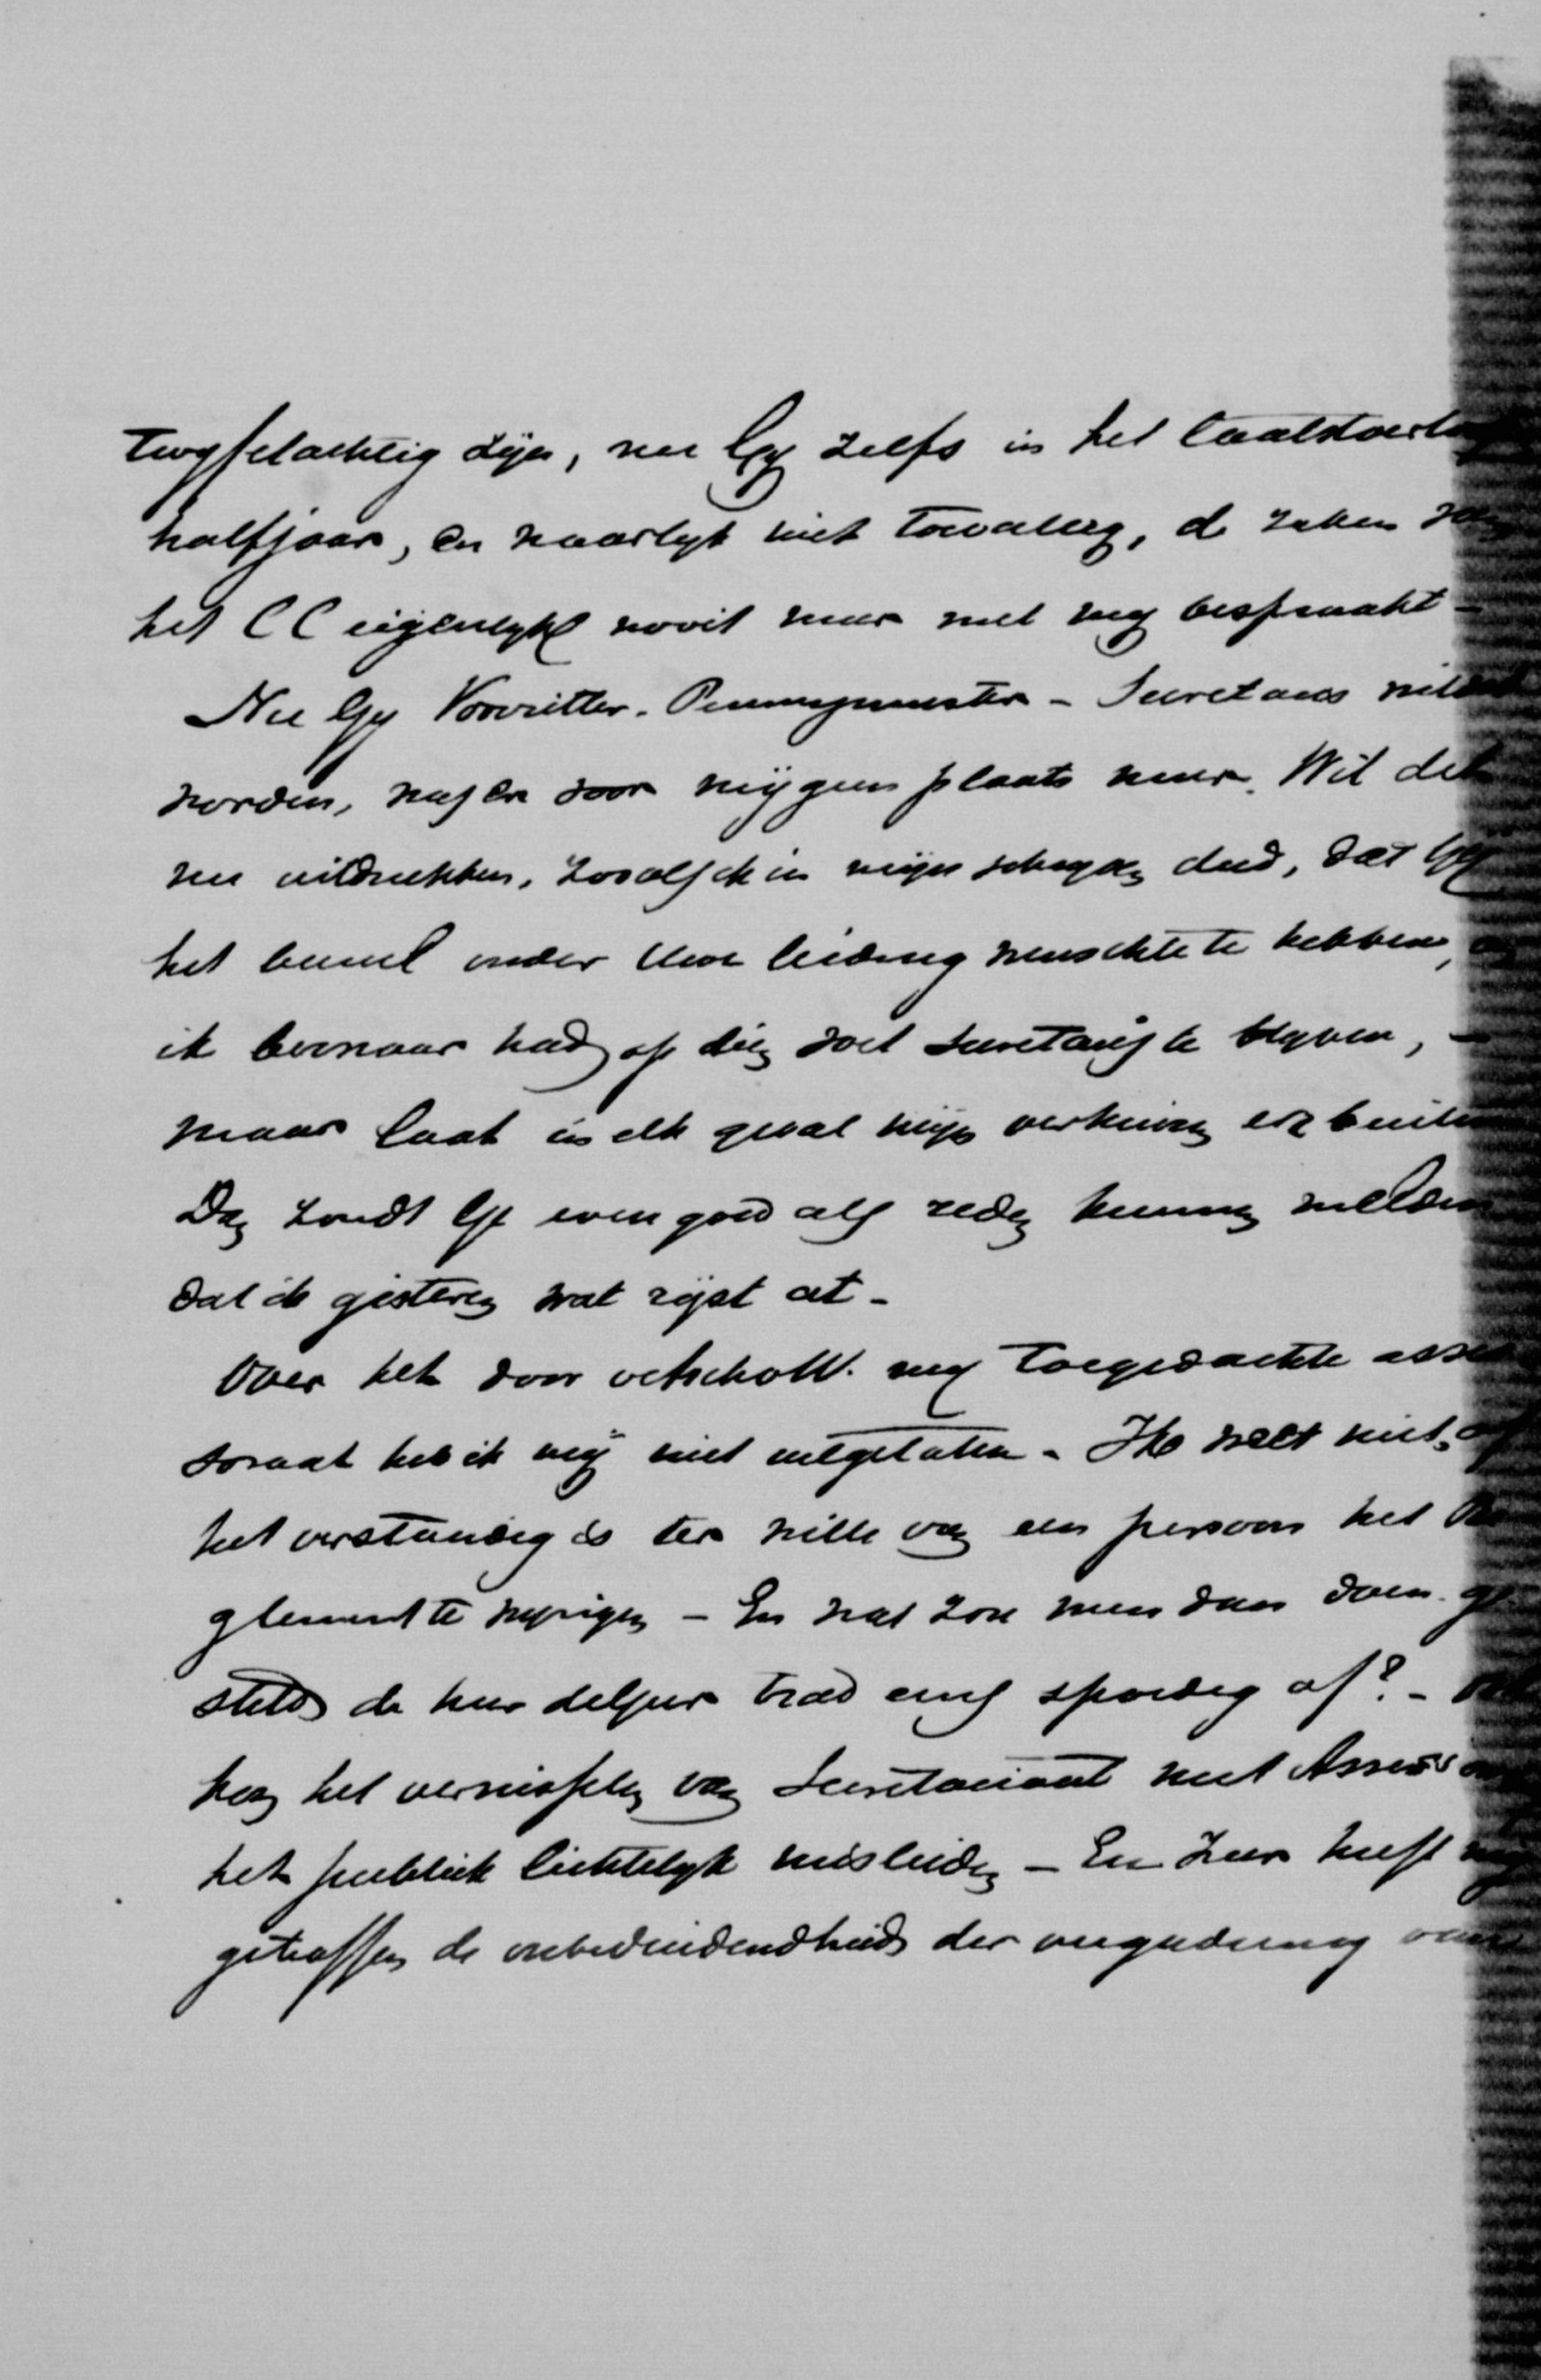 twyfelachtig zyn, nu Gy zelfs in het laatstverlo
halfjaar, en waarlyk niet toevallig, de zaken van
het CC eigenlyk nooit meer met my bespraakt –
Nu Gy Voorzitter - Penningmeester - Secretaris wildet
worden, was er voor mij geen plaats meer. Wil dit
nu uitdrukken, zooals ik in mijn schryven deed, dat Gy
het bureel onder Uwe leiding wenschte te hebben,
ik bezwaar had op die voet secretaris te blyven, –
maar laat in elk geval mijn verhuizing er buiten
Dan zoudt Ge even goed als reden kunnen melden
dat ik gisteren wat rijst at –
Over het door mij toegedachte asses
soraat heb ik mij niet uitgelaten – Ik weet niet, of
het verstandig is ter wille van een persoon het Re
glement te wyzigen – En wat zou men dan doen, ge
steld de heer trad eens spoedig af? –
kan het verwisselen van Secretariaat met Assessor
het publiek lichtelyk misleiden – En zeer heeft mij
getroffen de onbeduidendheid der vergadering van